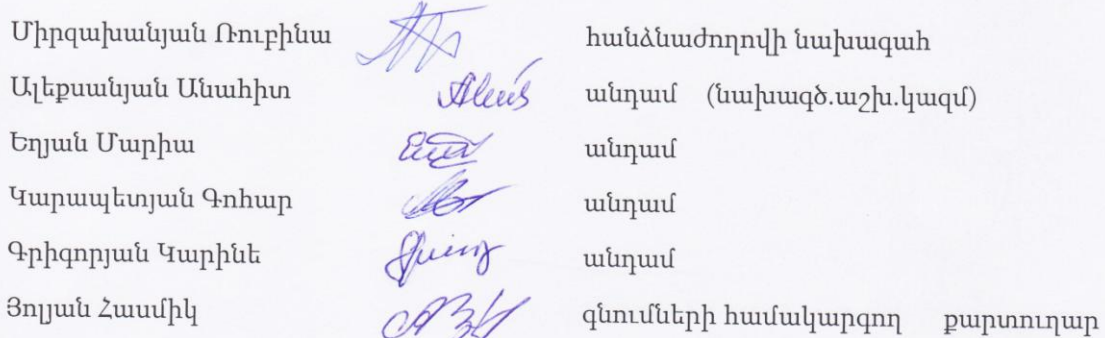 Միրզախանյան Ռուբինա հանձնաժողովի նախագահ
Ալեքսանյան Անահիտ անդամ (նախագծ.աշխ.կազմ)
Եղյան Մարիա անդամ
Կարապետյան Գոհար անդամ
Գրիգորյան Կարինե անդամ
Յոլյան Հասմիկ գնումների համակարգող քարտուղար